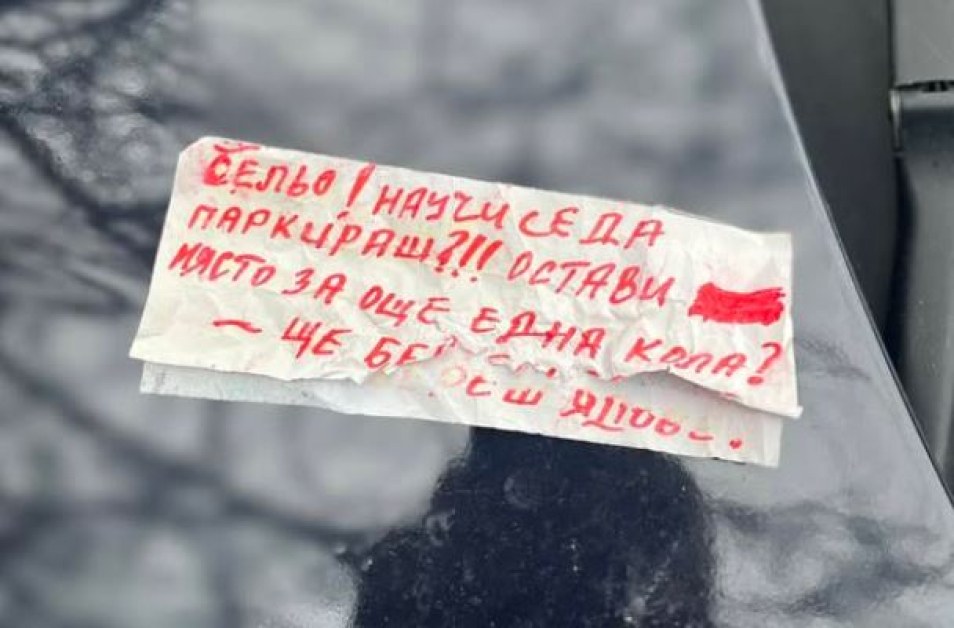 СЕЛЬО! НАУЧИ СЕ ДА
ПАРКИРАШ?!!! ОСТАВИ
МЯСТО ЗА ОЩЕ ЕДНА КОЛА?
~ ЩЕ